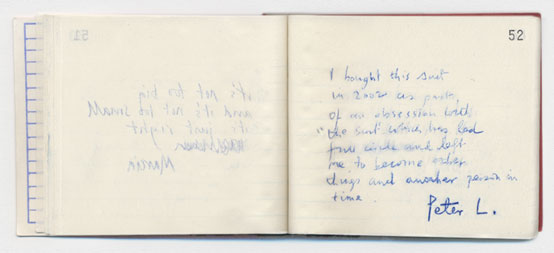 51
it's not too big
and it's not too small
it's just right
52
I bought this suit
in 2002 as part,
of an obsession with
"the suit" which has led
and left
me to become other
things and another person in
time.
Peter L.